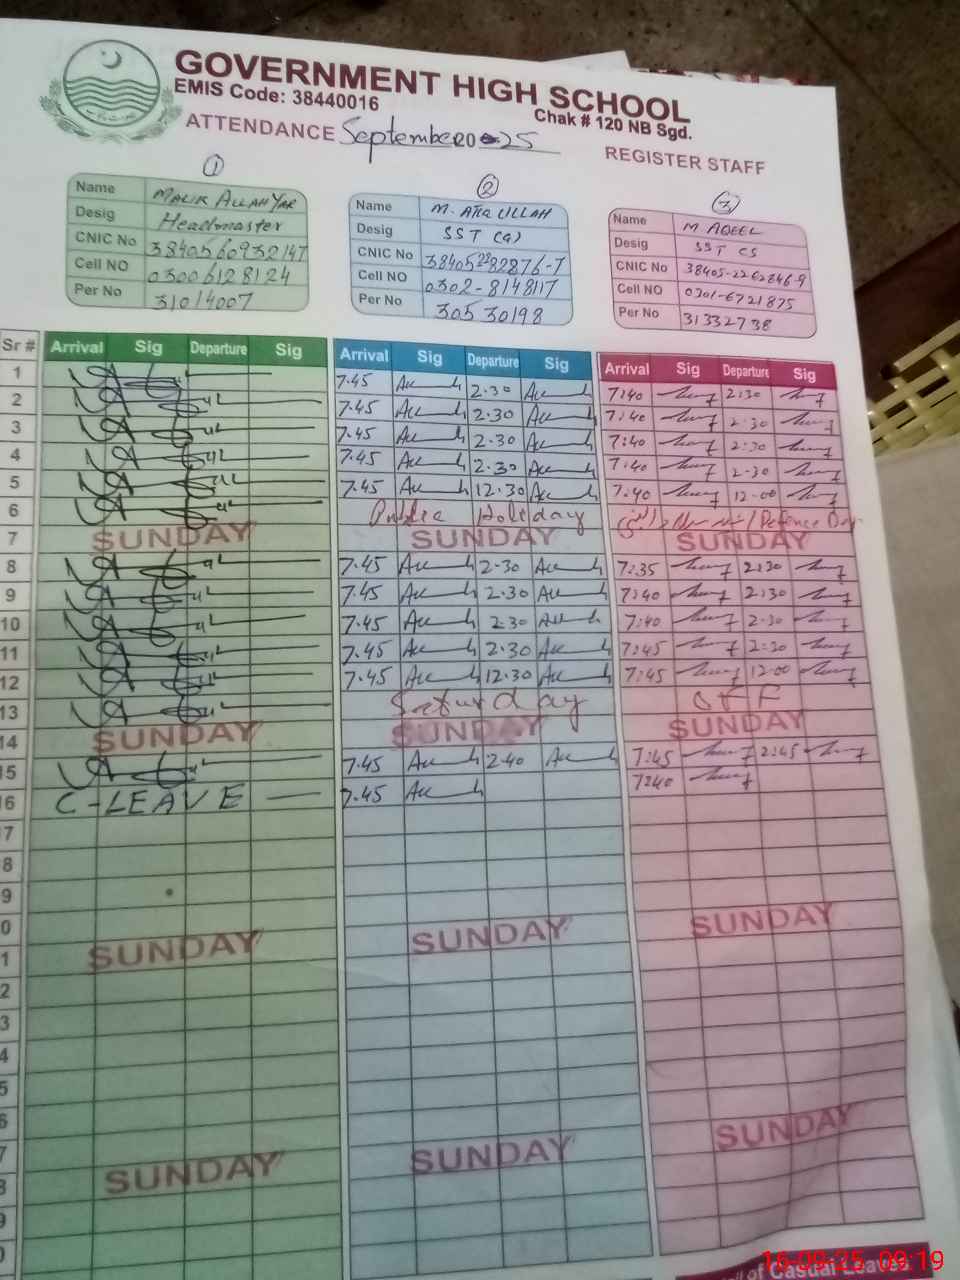 GOVERNMENT HIGH SCHOOL
EMIS Code: 38440016
Chak # 120 NB Sgd.
ATTENDANCE September 2025
REGISTER STAFF
1
Name MALIK ALLAH YAR
Desig Headmaster
CNIC No
Cell NO 03006128124
Per No 31014007
2
Name M. ATIQ ULLAH
Desig SST (G)
CNIC No
Cell NO 0302-8148117
Per No 30530198
3
Name M AQEEL
Desig SST CS
CNIC No
Cell NO 0301-6721875
Per No 31332738
Sr # Arrival Sig Departure Sig Arrival Sig Departure Sig Arrival Sig Departure Sig
1 7.45 2.30 7:40 2:30
2 7.45 2.30 7:40 2:30
3 7.45 2.30 7:40 2:30
4 7.45 2.30 7:40 2:30
5 7.45 12.30 7:40 12-00
6 Public Holiday Defence Day
7 SUNDAY SUNDAY SUNDAY
8 7.45 2.30 7:35 2:30
9 7.45 2.30 7:40 2:30
10 7.45 2.30 7:40 2:30
11 7.45 2.30 7:45 2:30
12 7.45 12.30 7:45 12-00
13 Saturday OFF
14 SUNDAY SUNDAY SUNDAY
15 7.45 2.40 7:45 2:45
16 C-LEAVE 7.45 7:40
7
8
9
0
1 SUNDAY SUNDAY SUNDAY
2
3
4
5
6
7
8 SUNDAY SUNDAY SUNDAY
9
0
of Casual Leaves
16-09-25 09:19